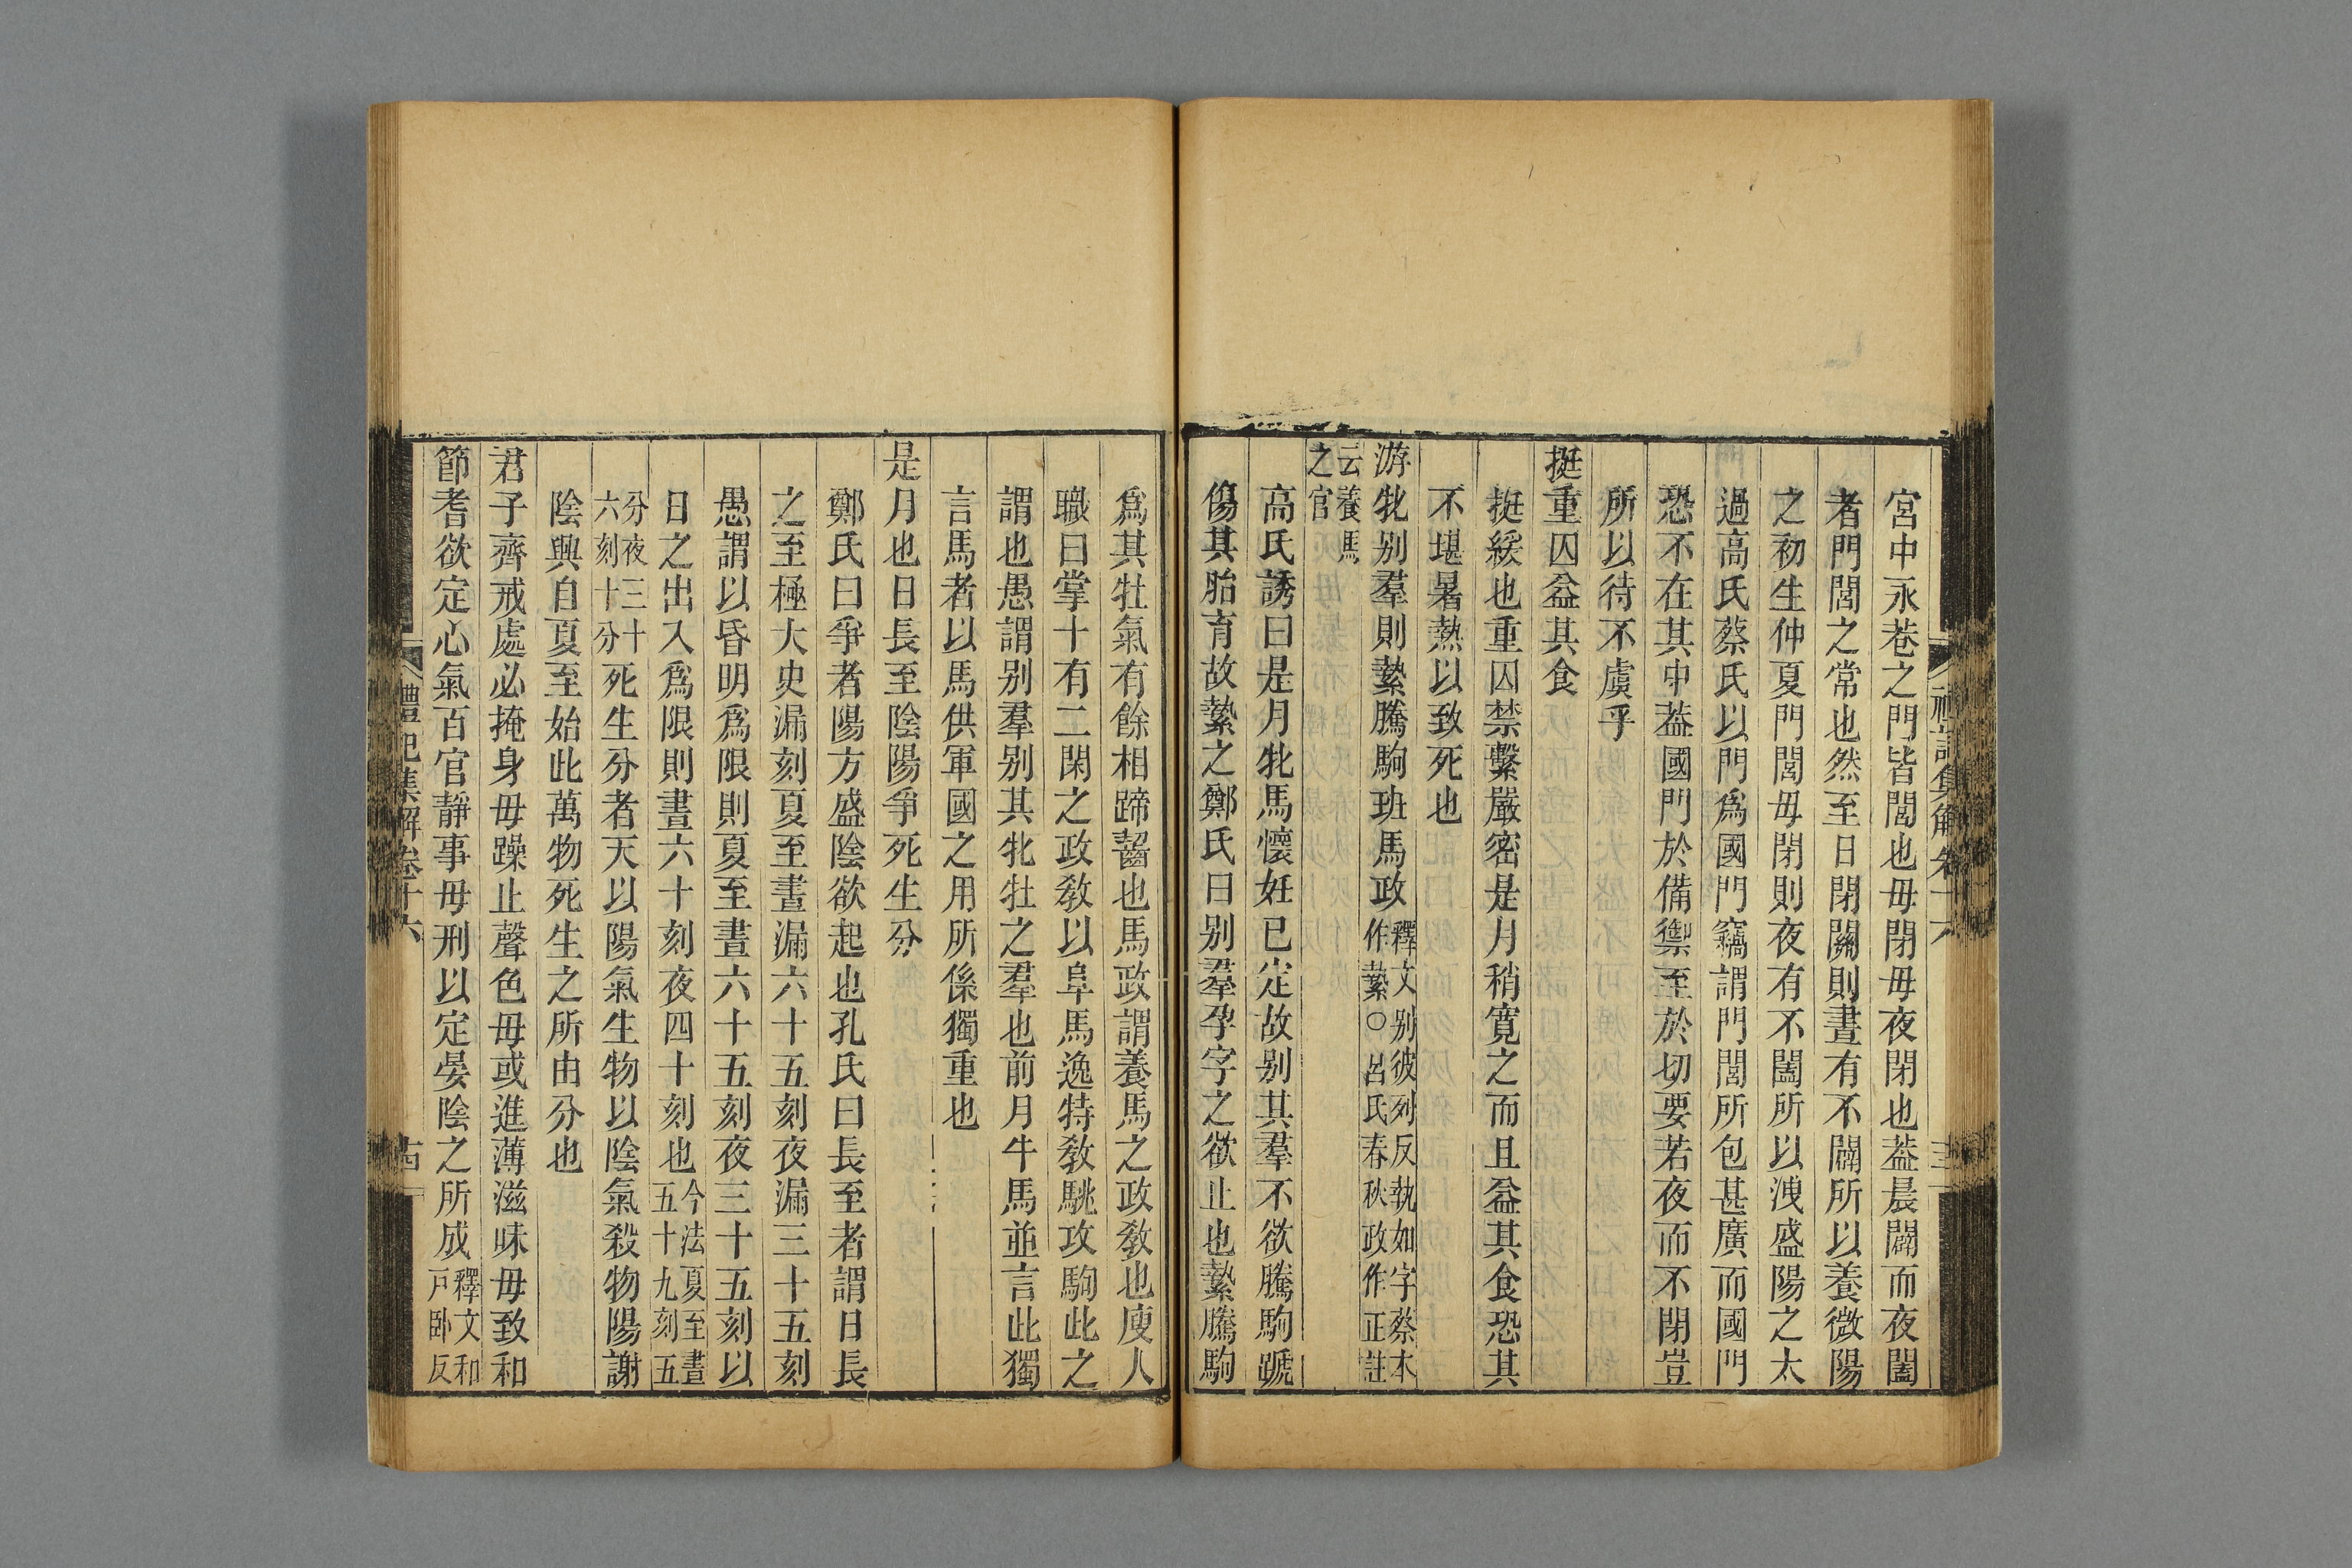 宮中永巷之門皆閭也毋閉毋夜閉也葢晨闢而夜闔
者門閭之常也然至日閉關則晝有不闢所以養微陽
之初生仲夏門閭毋閉則夜有不闔所以洩盛陽之太
過高氏蔡氏以門爲國門竊謂門閭所包甚廣而國門
恐不在其中葢國門於備禦至於切要若夜而不閉豈
所以待不虞乎
挺重囚益其食
挺緩也重囚禁繫嚴密是月稍寬之而且益其食恐其
不堪暑熱以致死也
游牝别羣則縶騰駒班馬政釋文别彼列反執如字蔡本作縶○呂氏春秋政作正註
云養馬之官
高氏誘曰是月牝馬懷妊已定故别其羣不欲騰駒蹏
傷其胎育故縶之鄭氏曰别羣孕字之欲止也縶騰駒
爲其牡氣有餘相蹄齧也馬政謂養馬之政教也廋人
職曰掌十有二閑之政教以阜馬逸特教駣攻駒此之
謂也愚謂别羣别其牝牡之羣也前月牛馬並言此獨
言馬者以馬供軍國之用所係獨重也
是月也日長至陰陽爭死生分
鄭氏曰爭者陽方盛陰欲起也孔氏曰長至者謂日長
之至極大史漏刻夏至晝漏六十五刻夜漏三十五刻
愚謂以昏明爲限則夏至晝六十五刻夜三十五刻以
日之出入爲限則晝六十刻夜四十刻也今法夏至晝五十九刻五
分夜三十六刻十分死生分者天以陽氣生物以陰氣殺物陽謝
陰興自夏至始此萬物死生之所由分也
君子齊戒處必掩身毋躁止聲色毋或進薄滋味毋致和
節耆欲定心氣百官靜事毋刑以定晏陰之所成釋文和戸卧反
禮記集解卷十六
十四